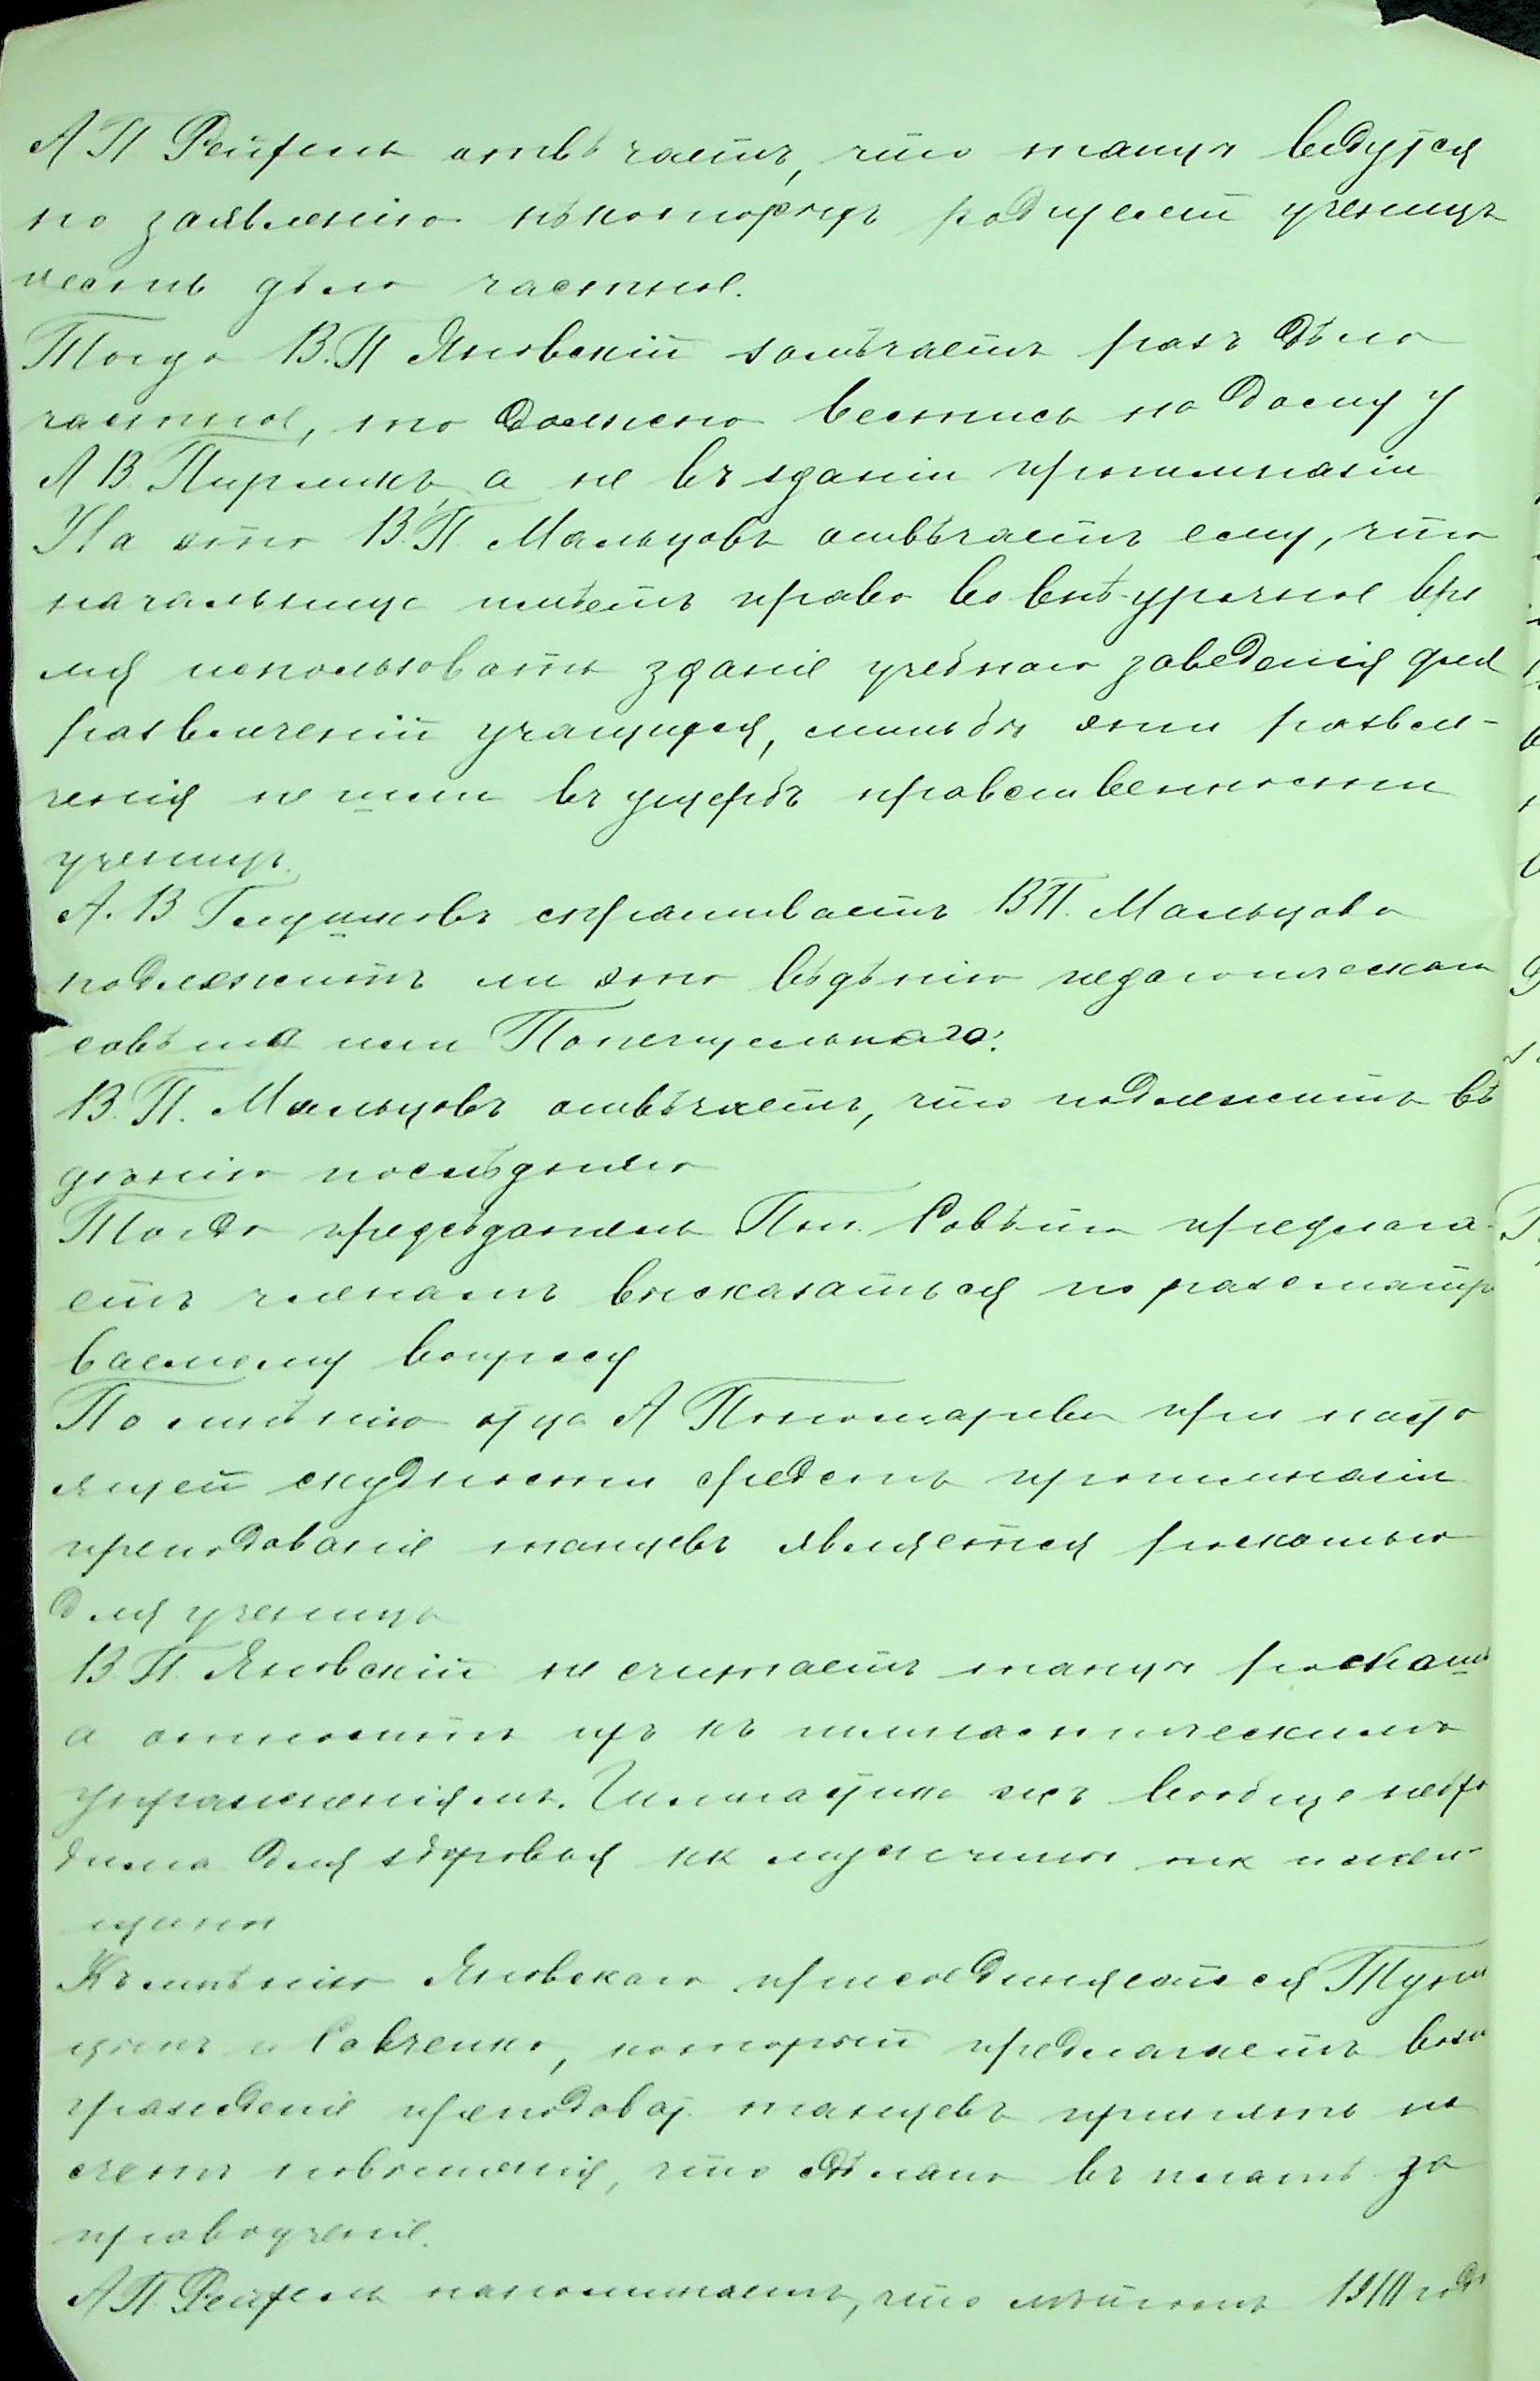 А П Рейфель отвѣчаетъ, что танцы ведутся
по заявленію нѣкоторыхъ родителей ученицъ
и есть дѣло частное.
Тогда В. П Яновскій замѣчаетъ разъ дѣло
частное, то должно вестись на дому у
А В, а не въ зданіи прогимназіи
На это В. П. Мальцовъ отвѣчаетъ ему, что
начальница имѣетъ право во внѣ-урочное вре
мя использовать зданіе учебнаго заведенія для
развлеченій учащихся, лишь бы эти развле-
ченія не шли въ ущербъ нравственности
ученицъ.
А. В Глушковъ спрашиваетъ В П. Мальцова
подлежитъ ли это вѣдѣнію педагогическаго
совѣта или Попечительнаго.
В. П. Мальцовъ отвѣчаетъ, что подлежитъ вѣ
дѣнію послѣдняго
Тогда предсѣдатель Поп. Совѣта предлага-
етъ членамъ высказаться по разсматри
ваемому вопросу
По мнѣнію отца А Пономарева при насто
ящей скудности средствъ прогимназіи
преподаваніе танцевъ является роскошью
для ученицъ
В П. Яновскій не считаетъ танцы роскошью
а относитъ ихъ къ гимнастическимъ
упражненіямъ. Гимнастика же вообще необхо
дима для здоровья как мужчины так и жен-
щины
Къ мнѣнію Яновскаго присоединяется
и Савченко, который предлагаетъ возна
гражденіе преподават. танцевъ принять на
счетъ повышенія, что сдѣлано въ платѣ за
правоученіе.
А П. Рейфель напоминаетъ, что лѣтомъ 1910 года